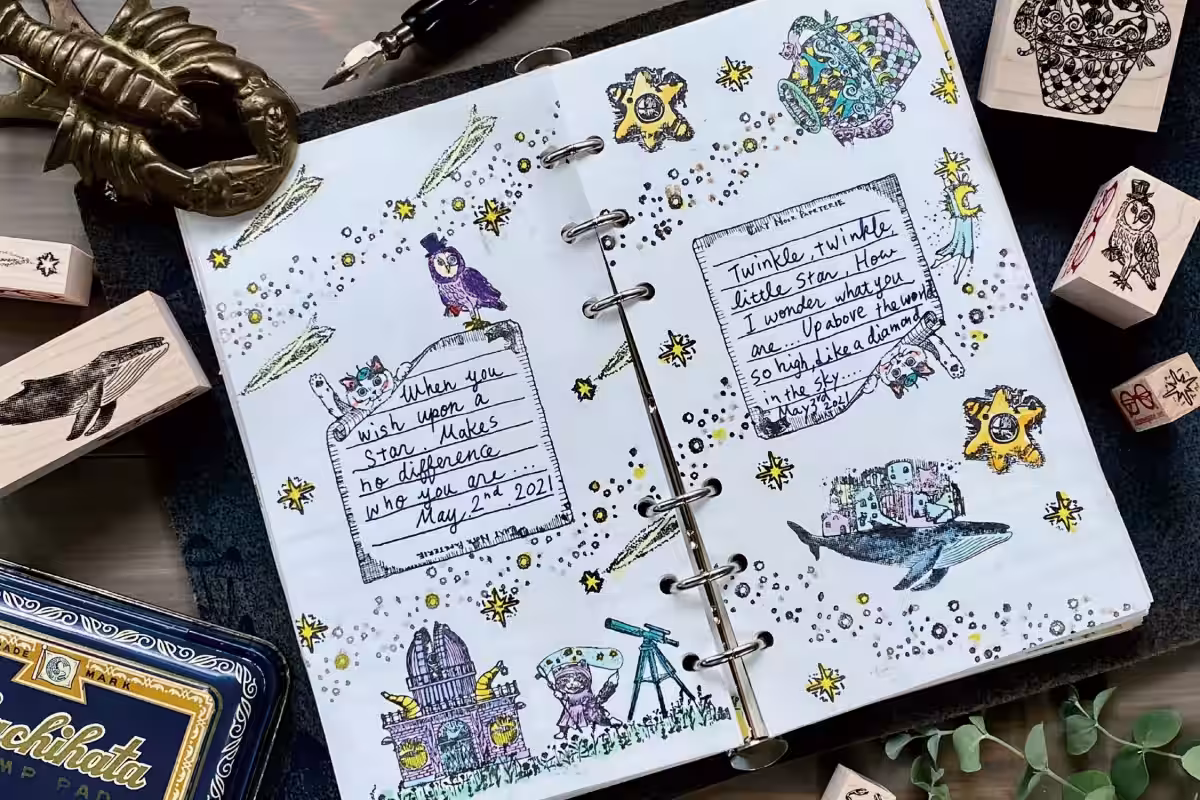 When you
wish upon a
star. Makes
no difference
who you are...
May 2nd. 2021
Twinkle, twinkle,
little star, How
I wonder what you
are... Up above the world
so high, Like a diamond
in the sky...
May 3rd 2021
PAPETERIE
PAPETERIE
MADE
MARK
achihata
MP PAD